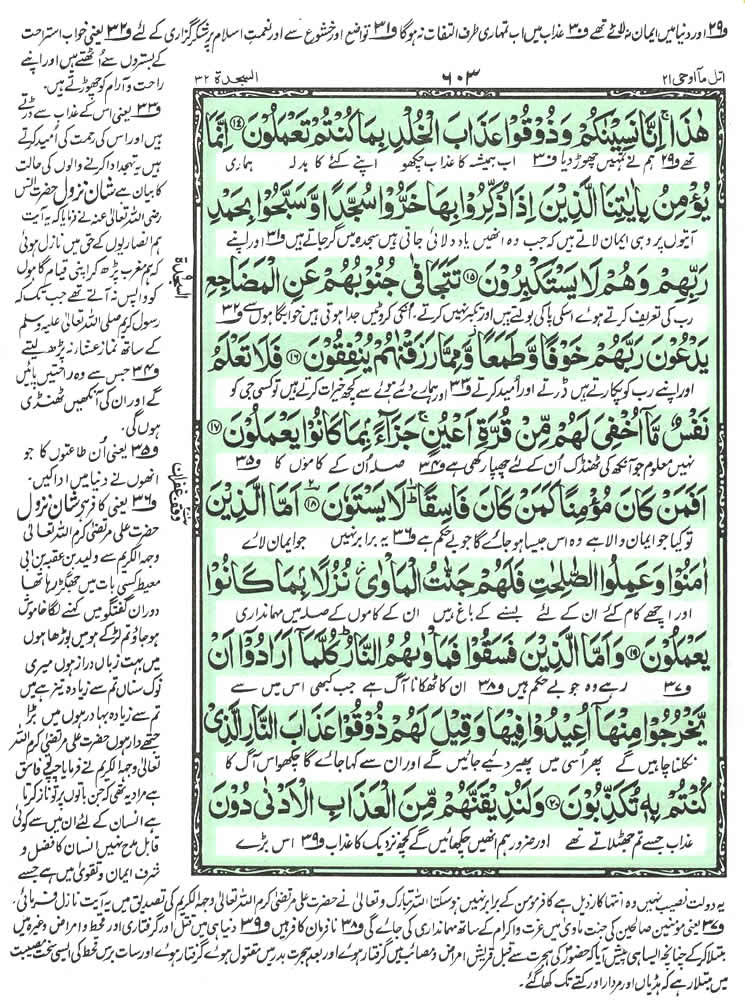 و۲۹ اور دنیا میں ایمان نہ لائے تھے و۳۰ عذاب میں اب تمہاری طرف التفات نہ ہوگا و۳۱ تواضع اور خشوع سے اور نعمتِ اسلام پر شکر گزاری کے لئے و۳۲ یعنی خواب استراحت
کے بستروں سے اُٹھتے ہیں اور اپنے
راحت و آرام کو چھوڑتے ہیں۔
و۳۳ یعنی اس کے عذاب سے ڈرتے
ہیں اور اس کی رحمت کی اُمید کرتے
ہیں یہ تہجد ادا کرنے والوں کی حالت
کا بیان ہے شانِ نزول حضرت انس
رضی اللہ تعالیٰ عنہ نے فرمایا کہ یہ آیت
ہم انصاریوں کے حق میں نازل ہوئی
کہ ہم مغرب پڑھ کر اپنی قیام گاہوں
کو واپس نہ آتے تھے جب تک کہ
رسول کریم صلی اللہ تعالیٰ علیہ وسلم
کے ساتھ نماز عشاء نہ پڑھ لیتے
و۳۴ جس سے وہ راحتیں پائیں
گے اور ان کی آنکھیں ٹھنڈی
ہوں گی۔
و۳۵ یعنی اُن طاعتوں کا جو
انھوں نے دنیا میں ادا کیں۔
و۳۶ یعنی کافر ہے شانِ نزول
حضرت علی مرتضیٰ کرم اللہ تعالیٰ
وجہہ الکریم سے ولید بن عقبہ بن ابی
معیط کسی بات میں جھگڑ رہا تھا
دورانِ گفتگو میں کہنے لگا خاموش
ہو جاؤ تم لڑکے ہو میں بوڑھا ہوں
میں بہت زباں دراز ہوں میری
نوک سناں تم سے زیادہ تیز ہے میں
تم سے زیادہ بہادر ہوں میں بڑا
جتھے دار ہوں حضرت علی مرتضیٰ کرم اللہ
تعالیٰ وجہہ الکریم نے فرمایا چپ تو فاسق
ہے مراد یہ تھی کہ جن باتوں پر تو ناز کرتا
ہے انسان کے لئے ان میں سے کوئی
قابل مدح نہیں انسان کا فضل و
شرف ایمان و تقویٰ میں ہے جسے
اتل مآ اوحی ۲۱
۶۰۳
السجدة ۳۲
هٰذَا ۚ اِنَّا نَسِيْنٰكُمْ وَذُوْقُوْا عَذَابَ الْخُلْدِ بِمَا كُنْتُمْ تَعْمَلُوْنَ ﴿۱۴﴾ اِنَّمَا
تھے و۲۹ ہم نے تمہیں چھوڑ دیا و۳۰ اب ہمیشہ کا عذاب چکھو اپنے کئے کا بدلہ ہماری
يُؤْمِنُ بِاٰيٰتِنَا الَّذِيْنَ اِذَا ذُكِّرُوْا بِهَا خَرُّوْا سُجَّدًا وَّسَبَّحُوْا بِحَمْدِ
آیتوں پر وہی ایمان لاتے ہیں کہ جب وہ انھیں یاد دلائی جاتی ہیں سجدہ میں گر جاتے ہیں و۳۱ اور اپنے
رَبِّهِمْ وَهُمْ لَا يَسْتَكْبِرُوْنَ ﴿۱۵﴾ تَتَجَافٰى جُنُوْبُهُمْ عَنِ الْمَضَاجِعِ
رب کی تعریف کرتے ہوئے اسکی پاکی بولتے ہیں اور تکبر نہیں کرتے، اُنکی کروٹیں جدا ہوتی ہیں خوابگاہوں سے و۳۲
يَدْعُوْنَ رَبَّهُمْ خَوْفًا وَّطَمَعًا ۫ وَّمِمَّا رَزَقْنٰهُمْ يُنْفِقُوْنَ ﴿۱۶﴾ فَلَا تَعْلَمُ
اور اپنے رب کو پکارتے ہیں ڈرتے اور اُمید کرتے و۳۳ اور ہمارے دئیے ہوئے سے کچھ خیرات کرتے ہیں تو کسی جی کو
نَفْسٌ مَّآ اُخْفِيَ لَهُمْ مِّنْ قُرَّةِ اَعْيُنٍ ۚ جَزَآءًۢ بِمَا كَانُوْا يَعْمَلُوْنَ ﴿۱۷﴾
نہیں معلوم جو آنکھ کی ٹھنڈک اُن کے لئے چھپا رکھی ہے و۳۴ صلہ اُن کے کاموں کا و۳۵
اَفَمَنْ كَانَ مُؤْمِنًا كَمَنْ كَانَ فَاسِقًا ؕ لَا يَسْتَوٗنَ ﴿۱۸﴾ اَمَّا الَّذِيْنَ
تو کیا جو ایمان والا ہے وہ اس جیسا ہو جائے گا جو بے حکم ہے و۳۶ یہ برابر نہیں جو ایمان لائے
اٰمَنُوْا وَعَمِلُوا الصّٰلِحٰتِ فَلَهُمْ جَنّٰتُ الْمَاْوٰى ۫ نُزُلًۢا بِمَا كَانُوْا
اور اچھے کام کئے ان کے لئے بسنے کے باغ ہیں ان کے کاموں کے صلہ میں مہمانداری
يَعْمَلُوْنَ ﴿۱۹﴾ وَاَمَّا الَّذِيْنَ فَسَقُوْا فَمَاْوٰىهُمُ النَّارُ ؕ كُلَّمَآ اَرَادُوْٓا اَنْ
و۳۷ رہے وہ جو بے حکم ہیں و۳۸ ان کا ٹھکانا آگ ہے جب کبھی اس میں سے
يَّخْرُجُوْا مِنْهَآ اُعِيْدُوْا فِيْهَا وَقِيْلَ لَهُمْ ذُوْقُوْا عَذَابَ النَّارِ الَّذِيْ
نکلنا چاہیں گے پھر اُسی میں پھیر دیے جائیں گے اور ان سے کہا جائے گا چکھو اس آگ کا
كُنْتُمْ بِهٖ تُكَذِّبُوْنَ ﴿۲۰﴾ وَلَنُذِيْقَنَّهُمْ مِّنَ الْعَذَابِ الْاَدْنٰى دُوْنَ
عذاب جسے تم جھٹلاتے تھے اور ضرور ہم انھیں چکھائیں گے کچھ نزدیک کا عذاب و۳۹ اس بڑے
السجدة
وقف غفران
یہ دولت نصیب نہیں وہ انتہا کا رذیل ہے کافر مومن کے برابر نہیں ہو سکتا اللہ تبارک و تعالیٰ نے حضرت علی مرتضیٰ کرم اللہ تعالیٰ وجہہ الکریم کی تصدیق میں یہ آیت نازل فرمائی۔
و۳۷ یعنی مؤمنین صالحین کی جنت ماویٰ میں عزت و اکرام کے ساتھ مہمانداری کی جائے گی و۳۸ نافرمان کافر ہیں و۳۹ دنیا ہی میں قتل اور گرفتاری اور قحط و امراض وغیرہ میں
مبتلا کر کے چنانچہ ایسا ہی پیش آیا کہ حضور کی ہجرت سے قبل قریش امراض و مصائب میں گرفتار ہوئے اور بعد ہجرت بدر میں مقتول ہوئے گرفتار ہوئے اور سات برس قحط کی ایسی سخت مصیبت
میں مبتلا رہے کہ ہڈیاں اور مردار اور کتے تک کھا گئے۔